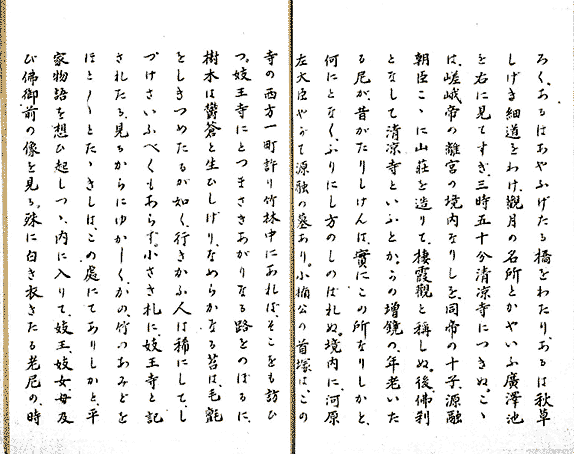 ろく、あるはあやふげたる橋をわたり、あるは秋草
しげき細道をわけ、觀月の名所とかやいふ廣澤池
を右に見てすぎ、三時五十分清凉寺につきぬ。こゝ
は、嵯峨帝の離宮の境内なりしを、同帝の十子源融
朝臣こゝに山莊を造りて、棲霞觀と稱しぬ。後、佛刹
となして清凉寺といふとか。かの増鏡の、年老いた
る尼が、昔がたりしけんは、實にこの所なりしかと、
何にとなく、ふりにし方のしのばれぬ。境内に、河原
左大臣やがて源融の墓あり。小楠公の首塚は、この
寺の西方一町許り竹林中にあれば、そこをも訪ひ
つ。妓王寺にとつまさきあがりなる路をのぼるに、
樹木は鬱蒼と生ひしげり、なめらかなる苔は、毛氈
をしきつめたるが如く、行きかふ人は稀にして、し
づけさいふべくもあらず。小さき札に、妓王寺と記
されたる、見るからにゆかしく、かの、竹のあみどを
ほと／＼とたゝきしは、この處にてありしかと、平
家物語を想ひ起しつゝ、内に入りて、妓王、妓女、母及
び佛御前の像を見る。殊に白き衣きたる老尼の、時